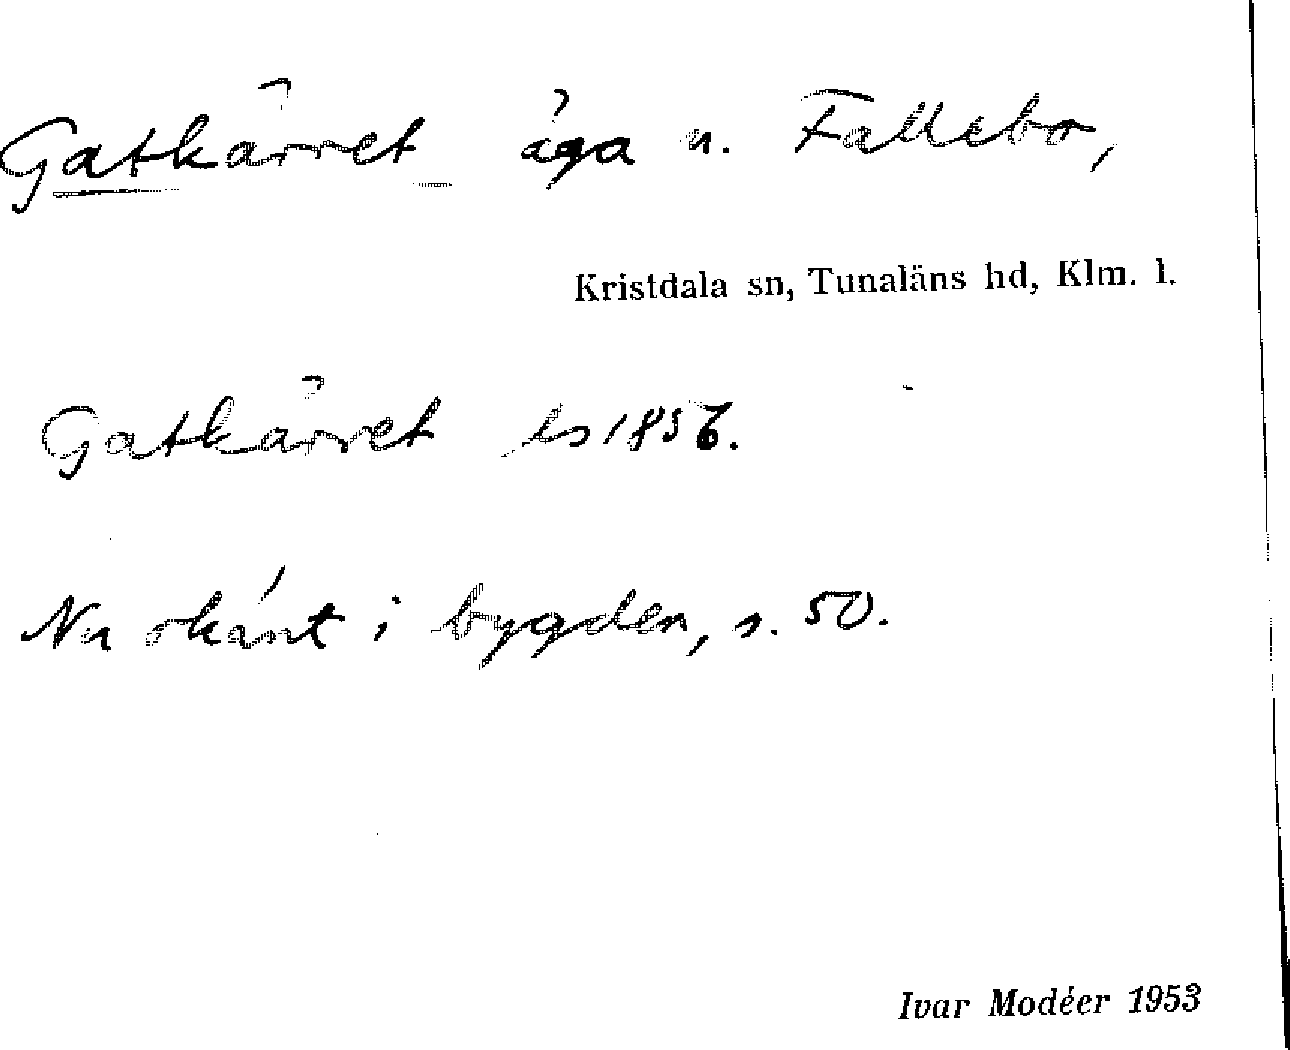 Gatkärret äga u. Fallebo,
Kristdala sn, Tunaläns hd, Klm. l.
Gatkärret ls 1856.
Nu okänt i bygden, s. 50.
Ivar Modéer 1953